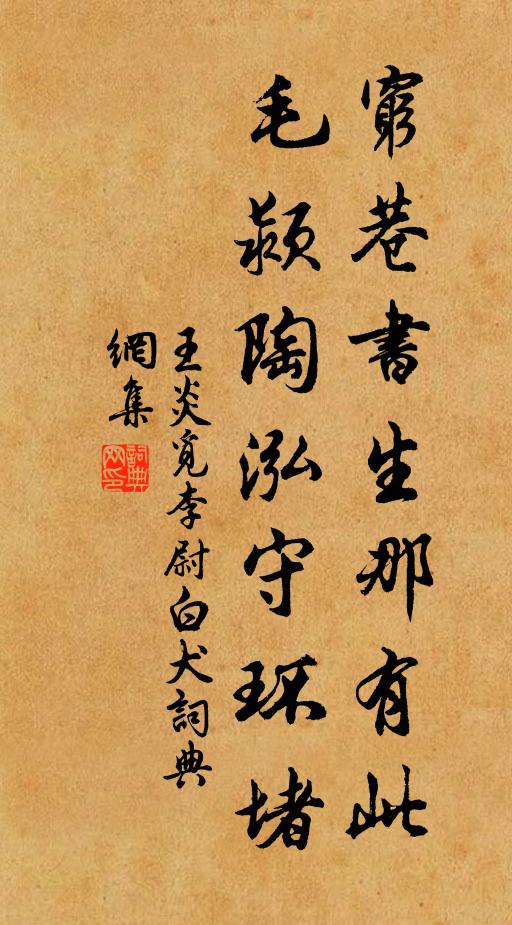 窮巷書生那有此
毛潁陶泓守環堵
王炎覓李尉白犬詞典
網集
詞典
网印